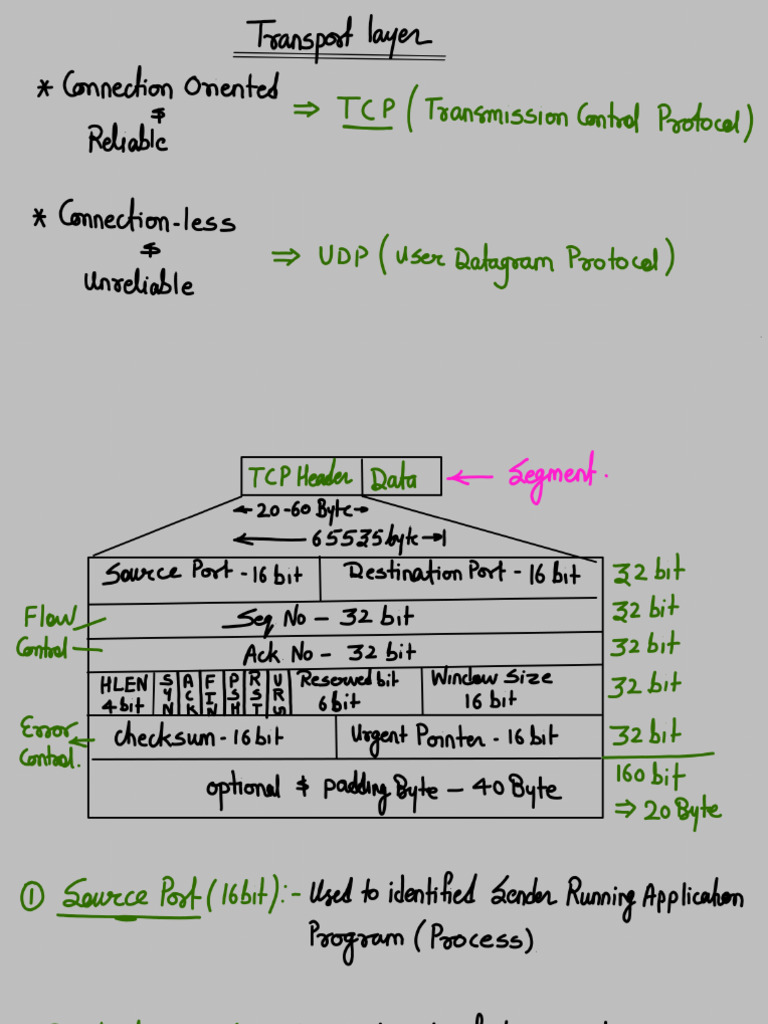 Transport layer
* Connection Oriented
$
Reliable
⇒ TCP (Transmission Control Protocol)
* Connection-less
$
Unreliable
⇒ UDP (User Datagram Protocol)
TCP Header Data ← Segment.
20-60 Byte
65535 byte
Source Port - 16 bit Destination Port - 16 bit 32 bit
Flow
Control
Seq No - 32 bit 32 bit
Ack No - 32 bit 32 bit
HLEN
4 bit
SYN
ACK
FIN
PSH
RST
URG
Reserved bit
6 bit
Window Size
16 bit
32 bit
Error
Control.
checksum - 16 bit Urgent Pointer - 16 bit 32 bit
optional $ padding Byte - 40 Byte
160 bit
⇒ 20 Byte
① Source Port (16 bit):- Used to identified Sender Running Application
Program (Process)